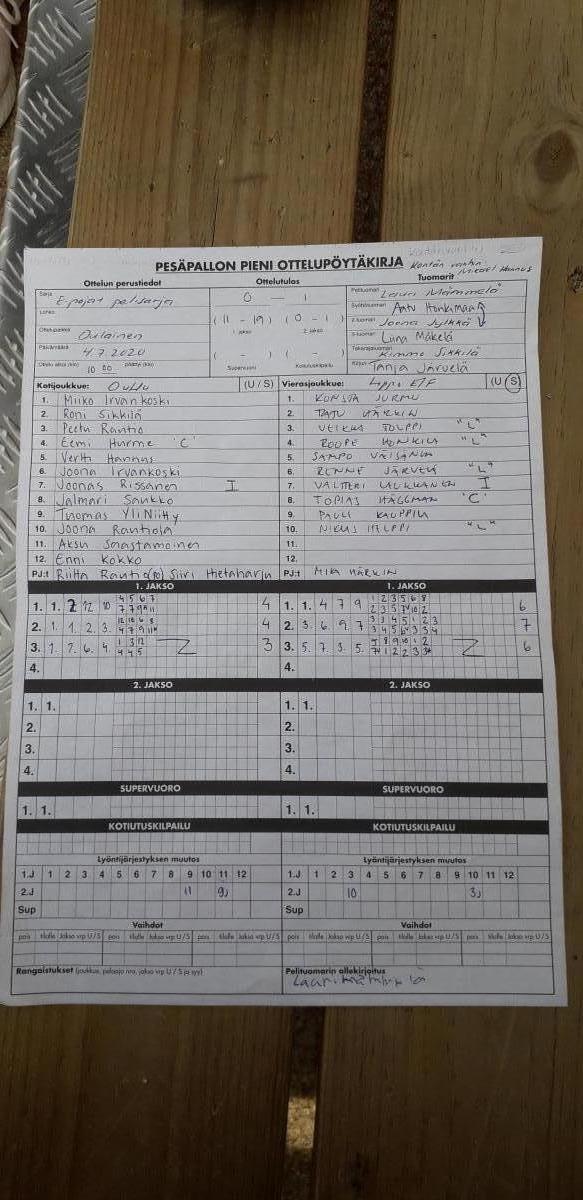 PESÄPALLON PIENI OTTELUPÖYTÄKIRJA Kentän vanhin
Ottelun perustiedot Ottelutulos Tuomarit Mikael Hannus
Sarja E-pojat pelisarja 0 — 1 Pelituomari Lauri Mämmelä
Lohko (11 - 19) (0 - 1) Syöttötuomari Antu Honkamaa
1. jakso 2. jakso 2-tuomari Joona Jylkkä
Ottelupaikka Oulainen 3-tuomari Luna Mäkelä
Päivämäärä 4.7.2020 ( - ) ( - ) Takarajatuomari Kimmo Sikkilä
Ottelu alkoi (klo) 10 00 päättyi (klo) Supervuoro Kotiutuskilpailu Kirjuri Tanja Järvelä
Kotijoukkue: Oulu (U / S) Vierasjoukkue: Lippo E/F (U / S)
1. Miiko Irvankoski 1. KONSTA JURMU
2. Roni Sikkilä 2. TATU HÄRKIN
3. Peetu Rantio 3. VEIKKA TOLPPI "L"
4. Eemi Hurme 'C' 4. ROOPE "L"
5. Vertti Hannus 5. SAMPO VÄISÄNEN
6. Joona Irvankoski 6. RENNE JÄRVELÄ "L"
7. Joonas Rissanen I 7. VALTTERI LAUKKANEN I
8. Jalmari Saukko 8. TOPIAS HÄGGMAN 'C'
9. Tuomas YliNiitty 9. PAULI KAUPPILA
10. Joona Rantiola 10. NIKLAS "L"
11. Aksu Saastamoinen 11.
12. Enni Kokko 12.
PJ:t Riitta Rantio Siiri Hietaharju PJ:t MIKA HÄRKIN
1. JAKSO 1. JAKSO
1. 1. 2 12 10 4 5 6 7 4 1. 1. 4 7 9 1 2 3 5 6 8 6
7 7 9 11 2 3 5 7 10 2
2. 1. 1. 2. 3. 12 10 6 8 4 2. 3. 6. 9. 7 3 3 4 5 1 2 3 7
4 7 9 11 3 4 5 6 3 3 4
3. 1. 2. 6. 4. 1 3 12 3 3. 5. 7. 3. 5. 5 8 9 10 1 2 6
4 4 5 7 1 2 2 3 3
4. 4.
2. JAKSO 2. JAKSO
1. 1. 1. 1.
2. 2.
3. 3.
4. 4.
SUPERVUORO SUPERVUORO
1. 1. 1. 1.
KOTIUTUSKILPAILU KOTIUTUSKILPAILU
Lyöntijärjestyksen muutos Lyöntijärjestyksen muutos
1.J 1 2 3 4 5 6 7 8 9 10 11 12 1.J 1 2 3 4 5 6 7 8 9 10 11 12
2.J 11 9 2.J 10 3
Sup Sup
Vaihdot Vaihdot
pois tilalle Jakso vrp U / S pois tilalle Jakso vrp U / S pois tilalle Jakso vrp U / S pois tilalle Jakso vrp U / S
Rangaistukset (joukkue, pelaaja nro, jakso vrp U / S ja syy) Pelituomarin allekirjoitus
Lauri Mämmelä